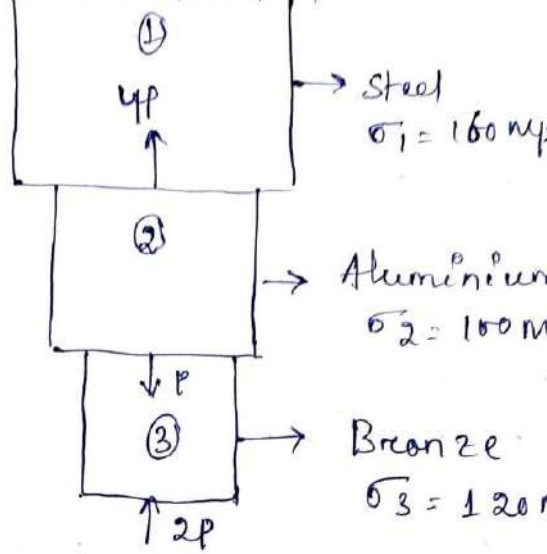 ①
4P
Steel
σ1 = 160 mp
②
Aluminium
σ2 = 100 m
P
③
Bronze
σ3 = 120 m
2P